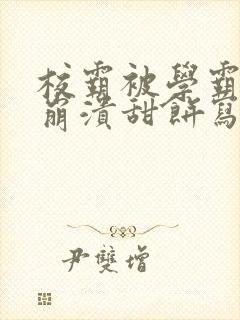 校霸被學霸
崩潰甜餅寫
尹雙增